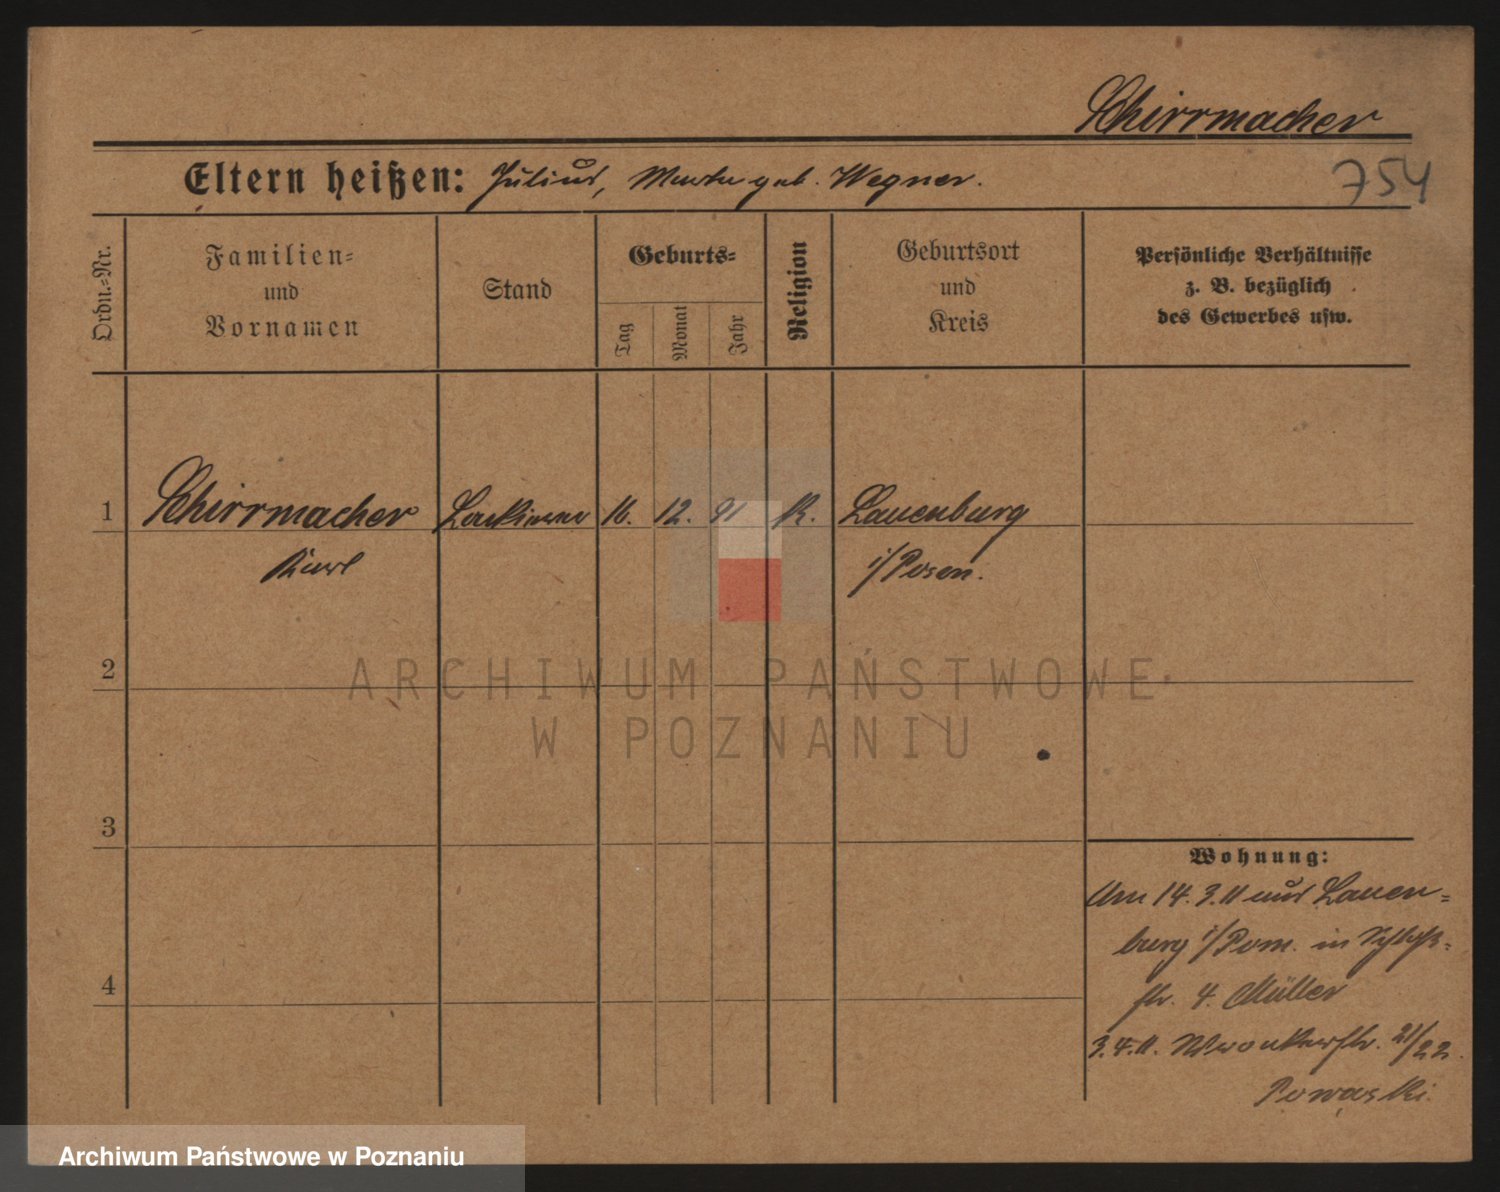 Schirrmacher
Eltern heißen: Julius, Marta geb. Wegner.
754
Ordn.-Nr.
Familien-
und
Vornamen
Stand
Geburts-
Tag
Monat
Jahr
Religion
Geburtsort
und
Kreis
Persönliche Verhältnisse
z. B. bezüglich
des Gewerbes usw.
1 Schirrmacher Lackierer 16. 12. 91 K. Lauenburg
Karl i/Posen.
2
ARCHIWUM PAŃSTWOWE
W POZNANIU
3
Wohnung:
Am 14.3.11 aus Lauen-
burg i/Pom. in Schloß-
4
str. 4. Müller
3.4.11. Wronkerstr. 21/22.
Powąski.
Archiwum Państwowe w Poznaniu